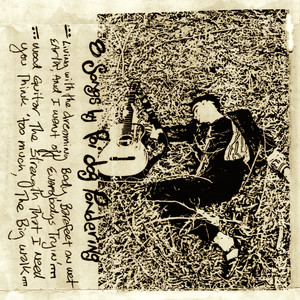 8 Songs by Poi Dog Pondering
--- Living with the Dreaming Body, Barefoot on wet
Earth, And I went off, Everybody's Tryin' ---
--- Wood Guitar, The Strength That I Need,
You Think too much, The Big walk ---